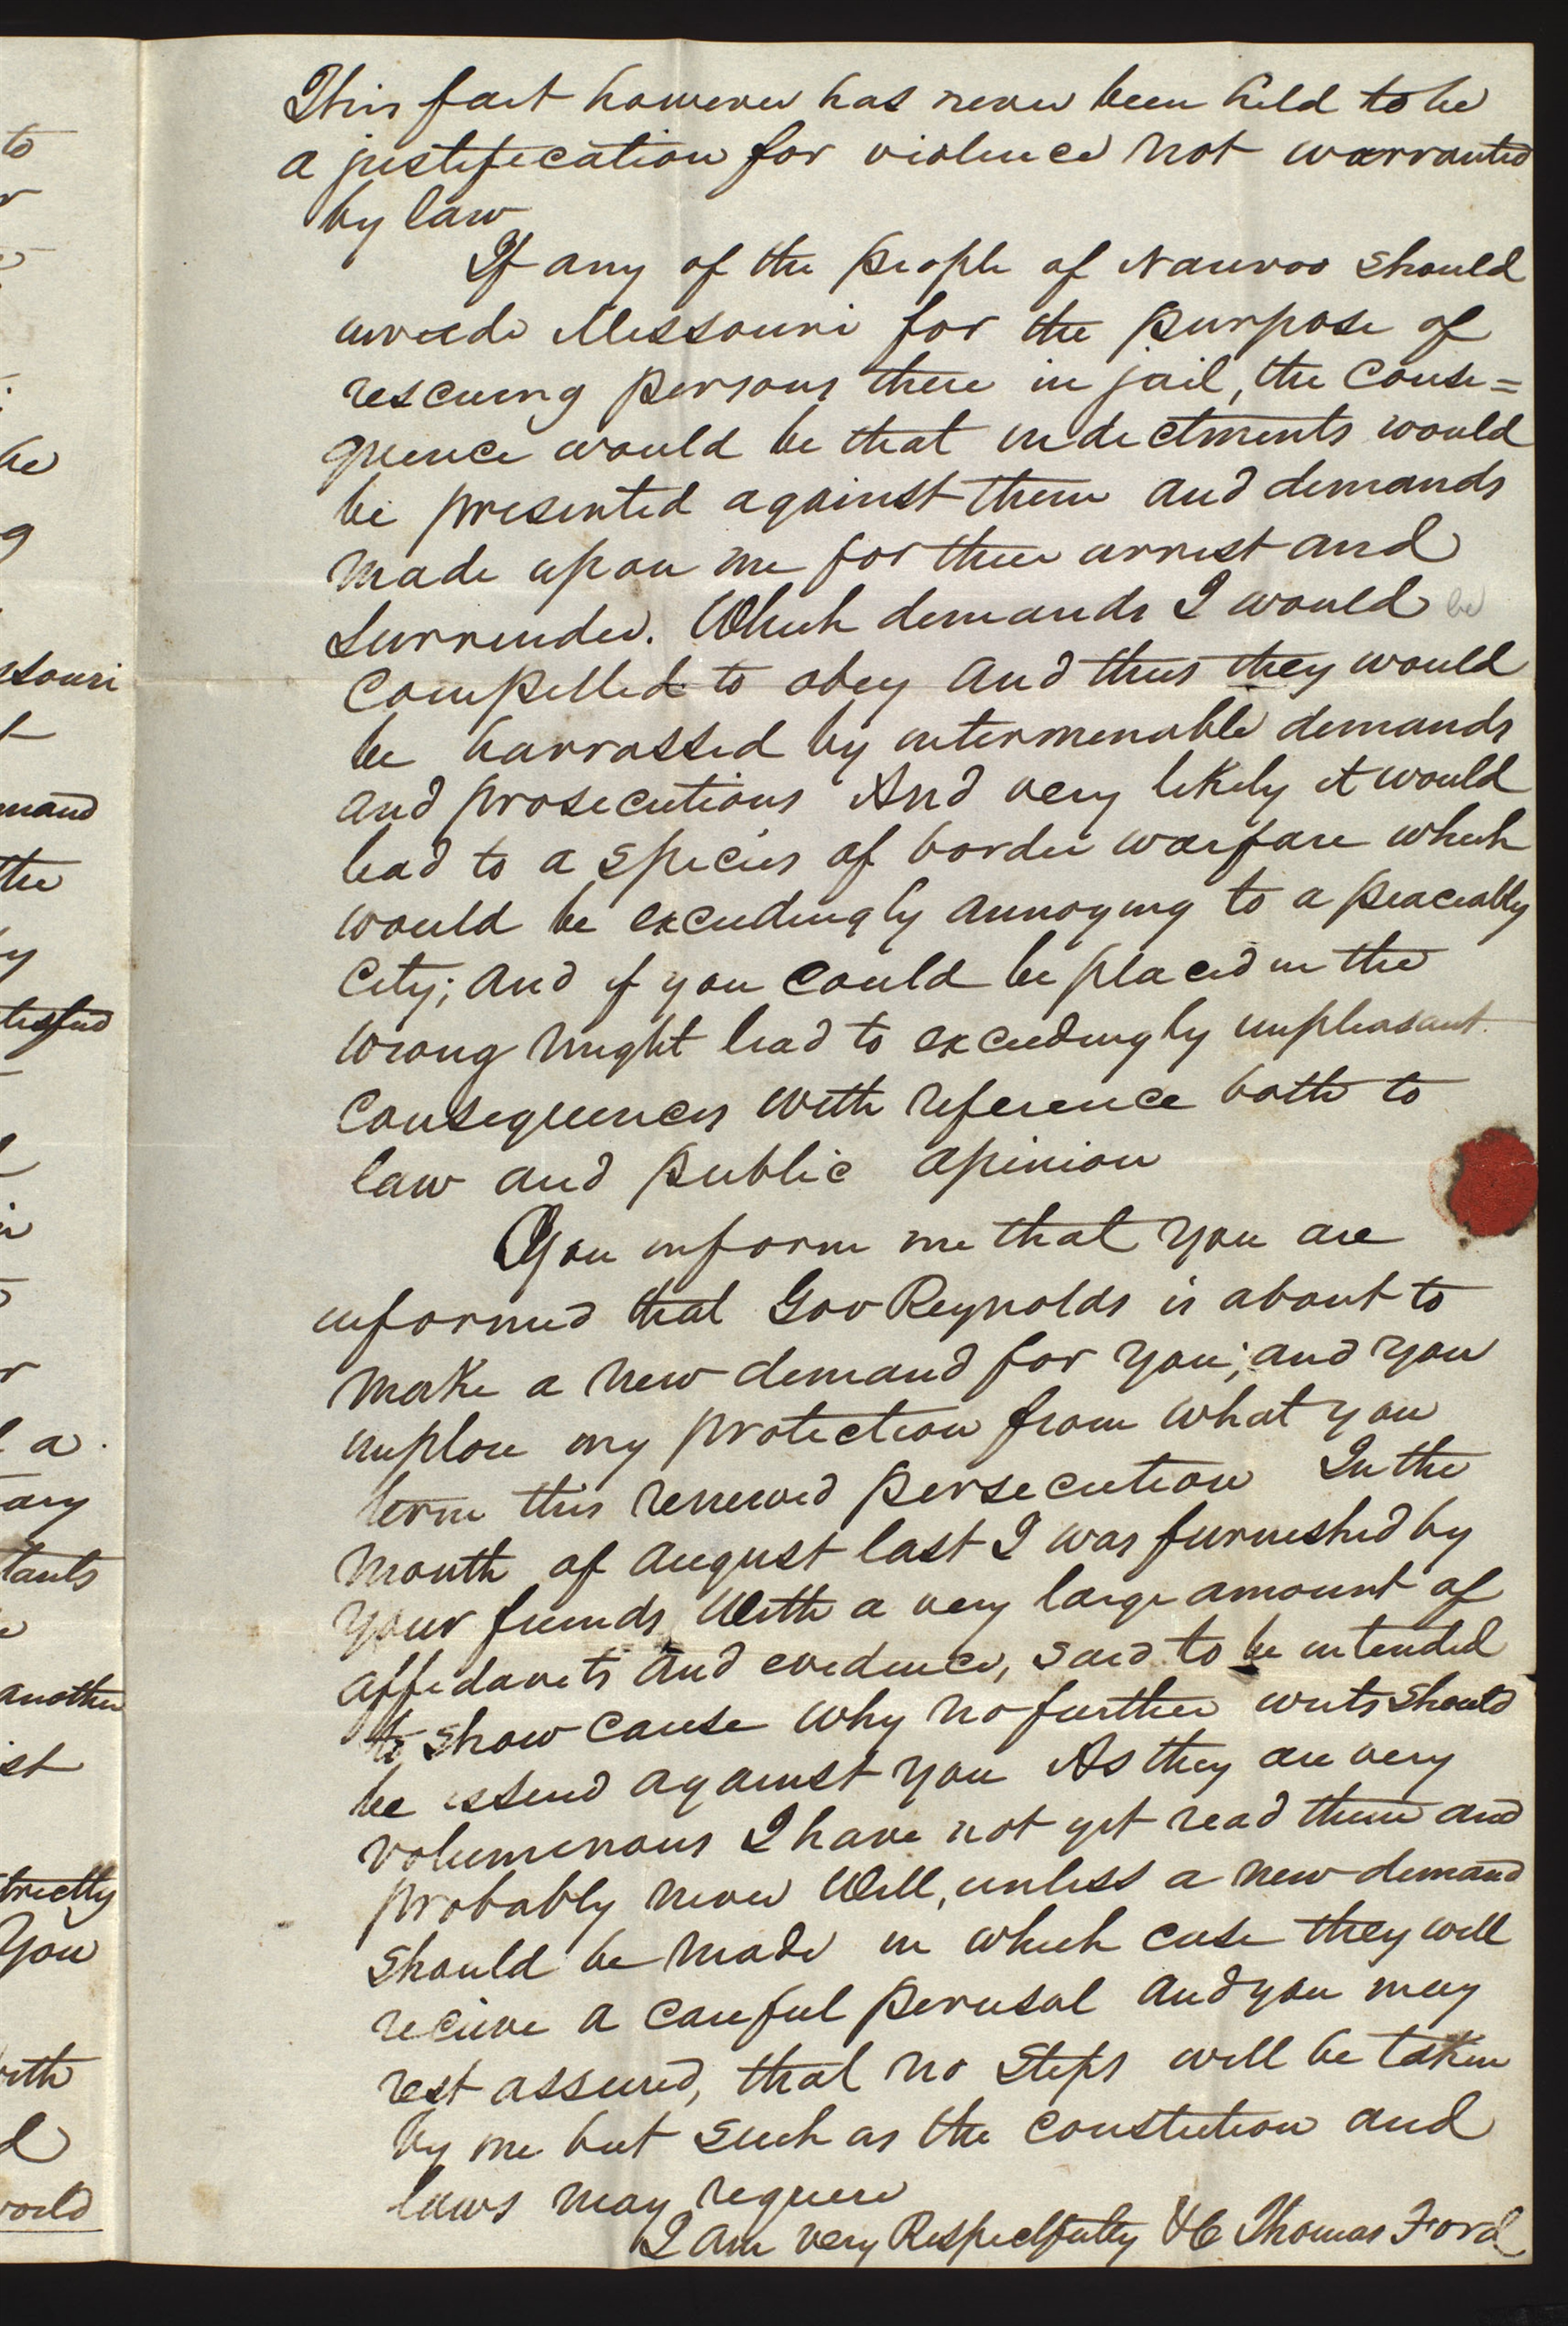 to
r
he
g
ssouri
mand
the
y
tisfied
r
l a.
ary
tants
another
ist
strictly
You
with
d
world
This fact however has never been held to be
a justification for violence not warranted
by law
If any of the people of Nauvoo should
invade Missouri for the purpose of
rescuing persons there in jail, the conse=
quence would be that indictments would
be presented against them and demands
made upon me for their arrest and
surrender. Which demands I would be
compelled to obey and thus they would
be harrassed by interminable demands
and prosecutions And very likely it would
lead to a species of border warfare which
would be exceedingly annoying to a peaceably
city; and if you could be placed in the
wrong might lead to exceedingly unpleasant
consequences with reference both to
law and public opinion
You inform me that you are
informed that Gov Reynolds is about to
make a new demand for you; and you
implore my protection from what you
term this renewed persecution In the
month of august last I was furnished by
your friends With a very large amount of
affidavits and evidence, said to be intended
to show cause why no further writs should
be issued against you As they are very
voluminous I have not yet read them and
probably never Will, unless a new demand
should be made in which case they will
recieve a careful perusal and you may
rest assured, that no steps will be taken
by me but such as the constution and
laws may require
I am very Respectfully &c Thomas Ford